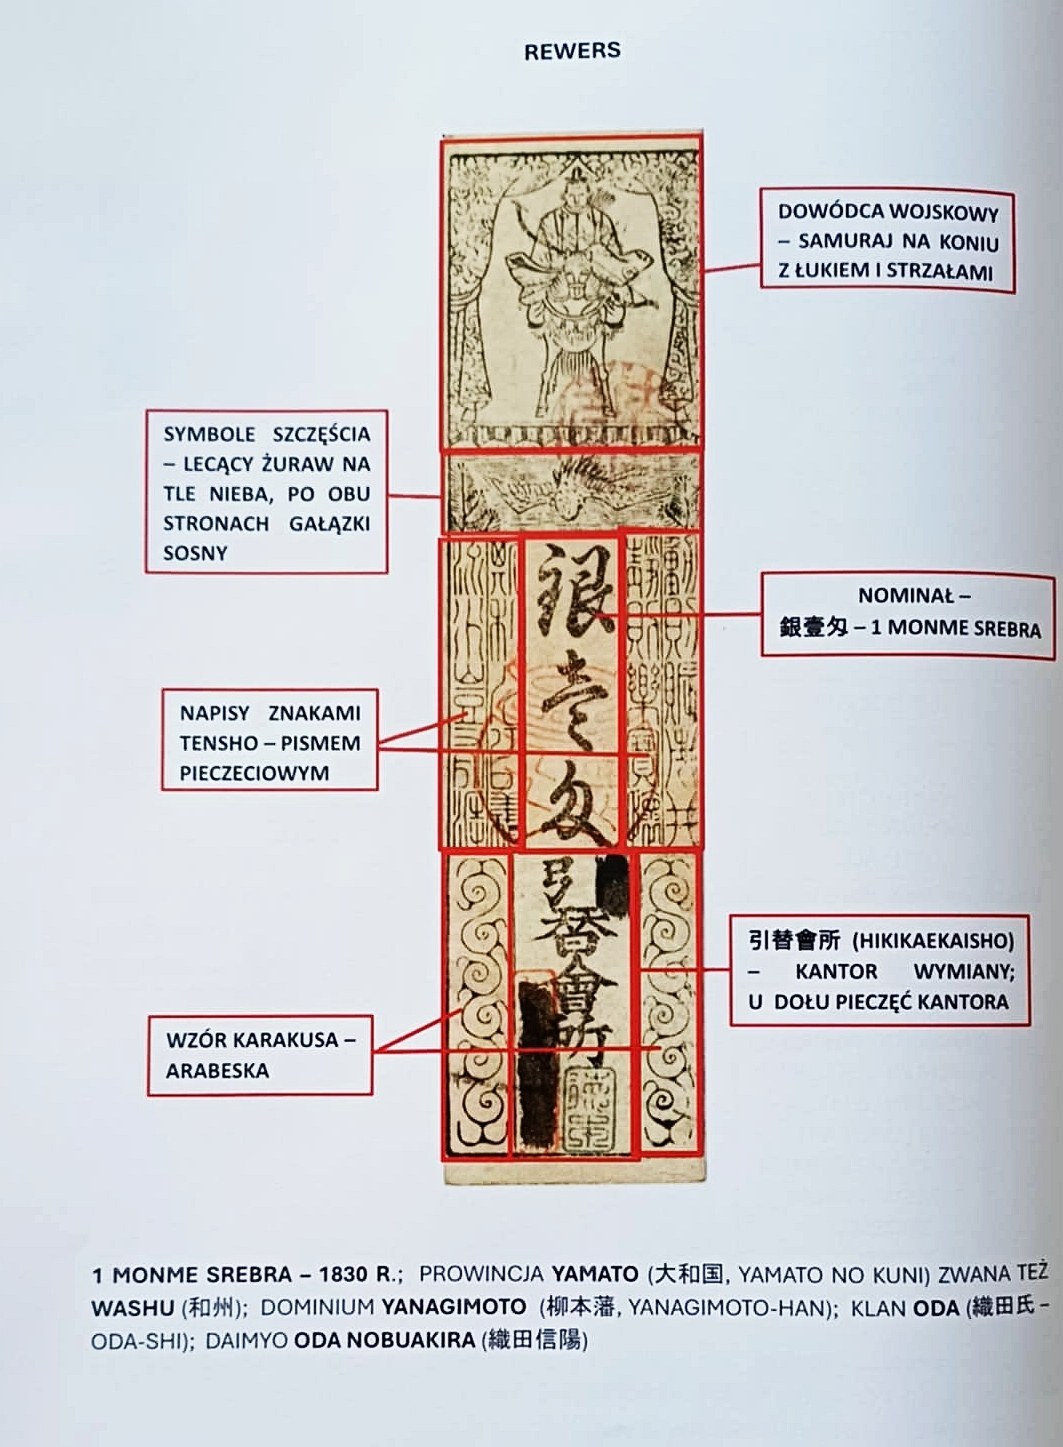 REWERS
DOWÓDCA WOJSKOWY
– SAMURAJ NA KONIU
Z ŁUKIEM I STRZAŁAMI
SYMBOLE SZCZĘŚCIA
– LECĄCY ŻURAW NA
TLE NIEBA, PO OBU
STRONACH GAŁĄZKI
SOSNY
NOMINAŁ –
銀壹匁 – 1 MONME SREBRA
NAPISY ZNAKAMI
TENSHO – PISMEM
PIECZECIOWYM
銀
壹
匁
引
替
會
所
引替會所 (HIKIKAEKAISHO)
– KANTOR WYMIANY;
U DOŁU PIECZĘĆ KANTORA
WZÓR KARAKUSA –
ARABESKA
1 MONME SREBRA – 1830 R.; PROWINCJA YAMATO (大和国, YAMATO NO KUNI) ZWANA TEŻ
WASHU (和州); DOMINIUM YANAGIMOTO (柳本藩, YANAGIMOTO-HAN); KLAN ODA (織田氏 –
ODA-SHI); DAIMYO ODA NOBUAKIRA (織田信陽)